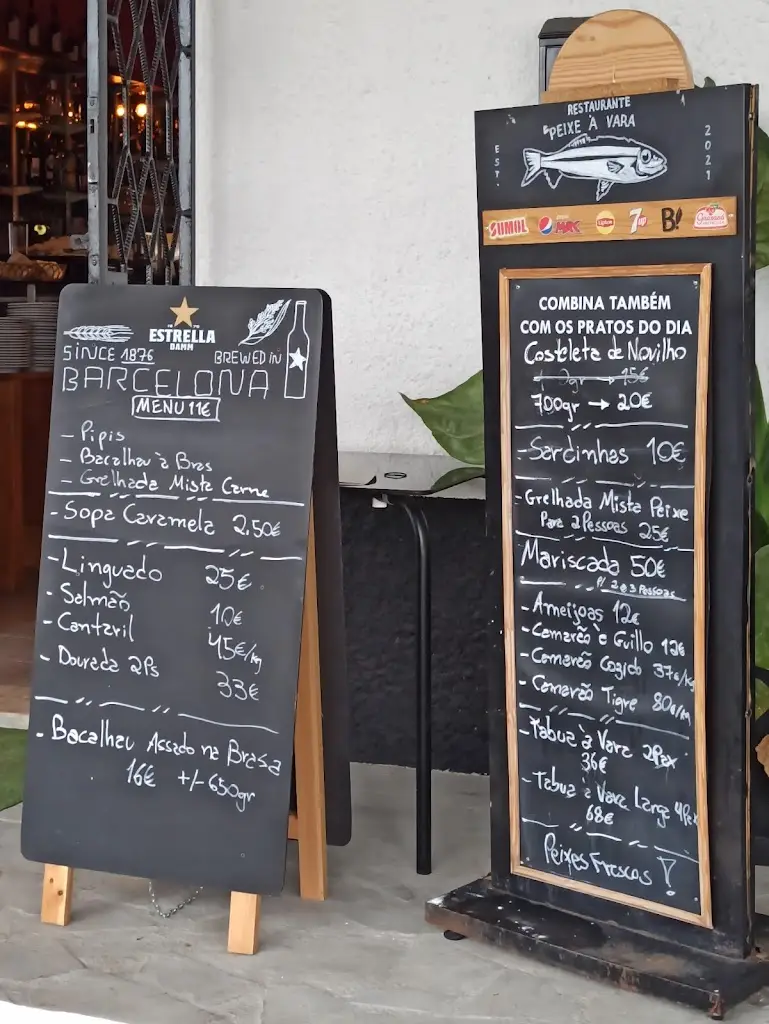 ESTRELLA
DAMM
SINCE 1876 BREWED IN
BARCELONA
MENU 11€
- Pipis
- Bacalhau à Bras
- Grelhada Mista Carne
- Sopa Caramela 2,50€
- Linguado 25€
- Salmão 10€
- Cantaril 45€/kg
- Dourada 2Ps 33€
- Bacalhau Assado na Brasa
16€ +/- 650gr
RESTAURANTE
PEIXE À VARA
EST. 2021
SUMOL pepsi MAX Lipton 7up B! Guaraná
COMBINA TAMBÉM
COM OS PRATOS DO DIA
Costeleta de Novilho
15€
700gr → 20€
- Sardinhas 10€
- Grelhada Mista Peixe
Para 2 Pessoas 25€
Mariscada 50€
P/ 2 e 3 Pessoas
- Ameijoas 12€
- Camarão à Guilho 12€
- Camarão Cozido 37€/kg
- Camarão Tigre 80€/kg
- Tabua à Vara 2Pax
36€
- Tabua à Vara Large 4Pax
68€
Peixes Frescos!